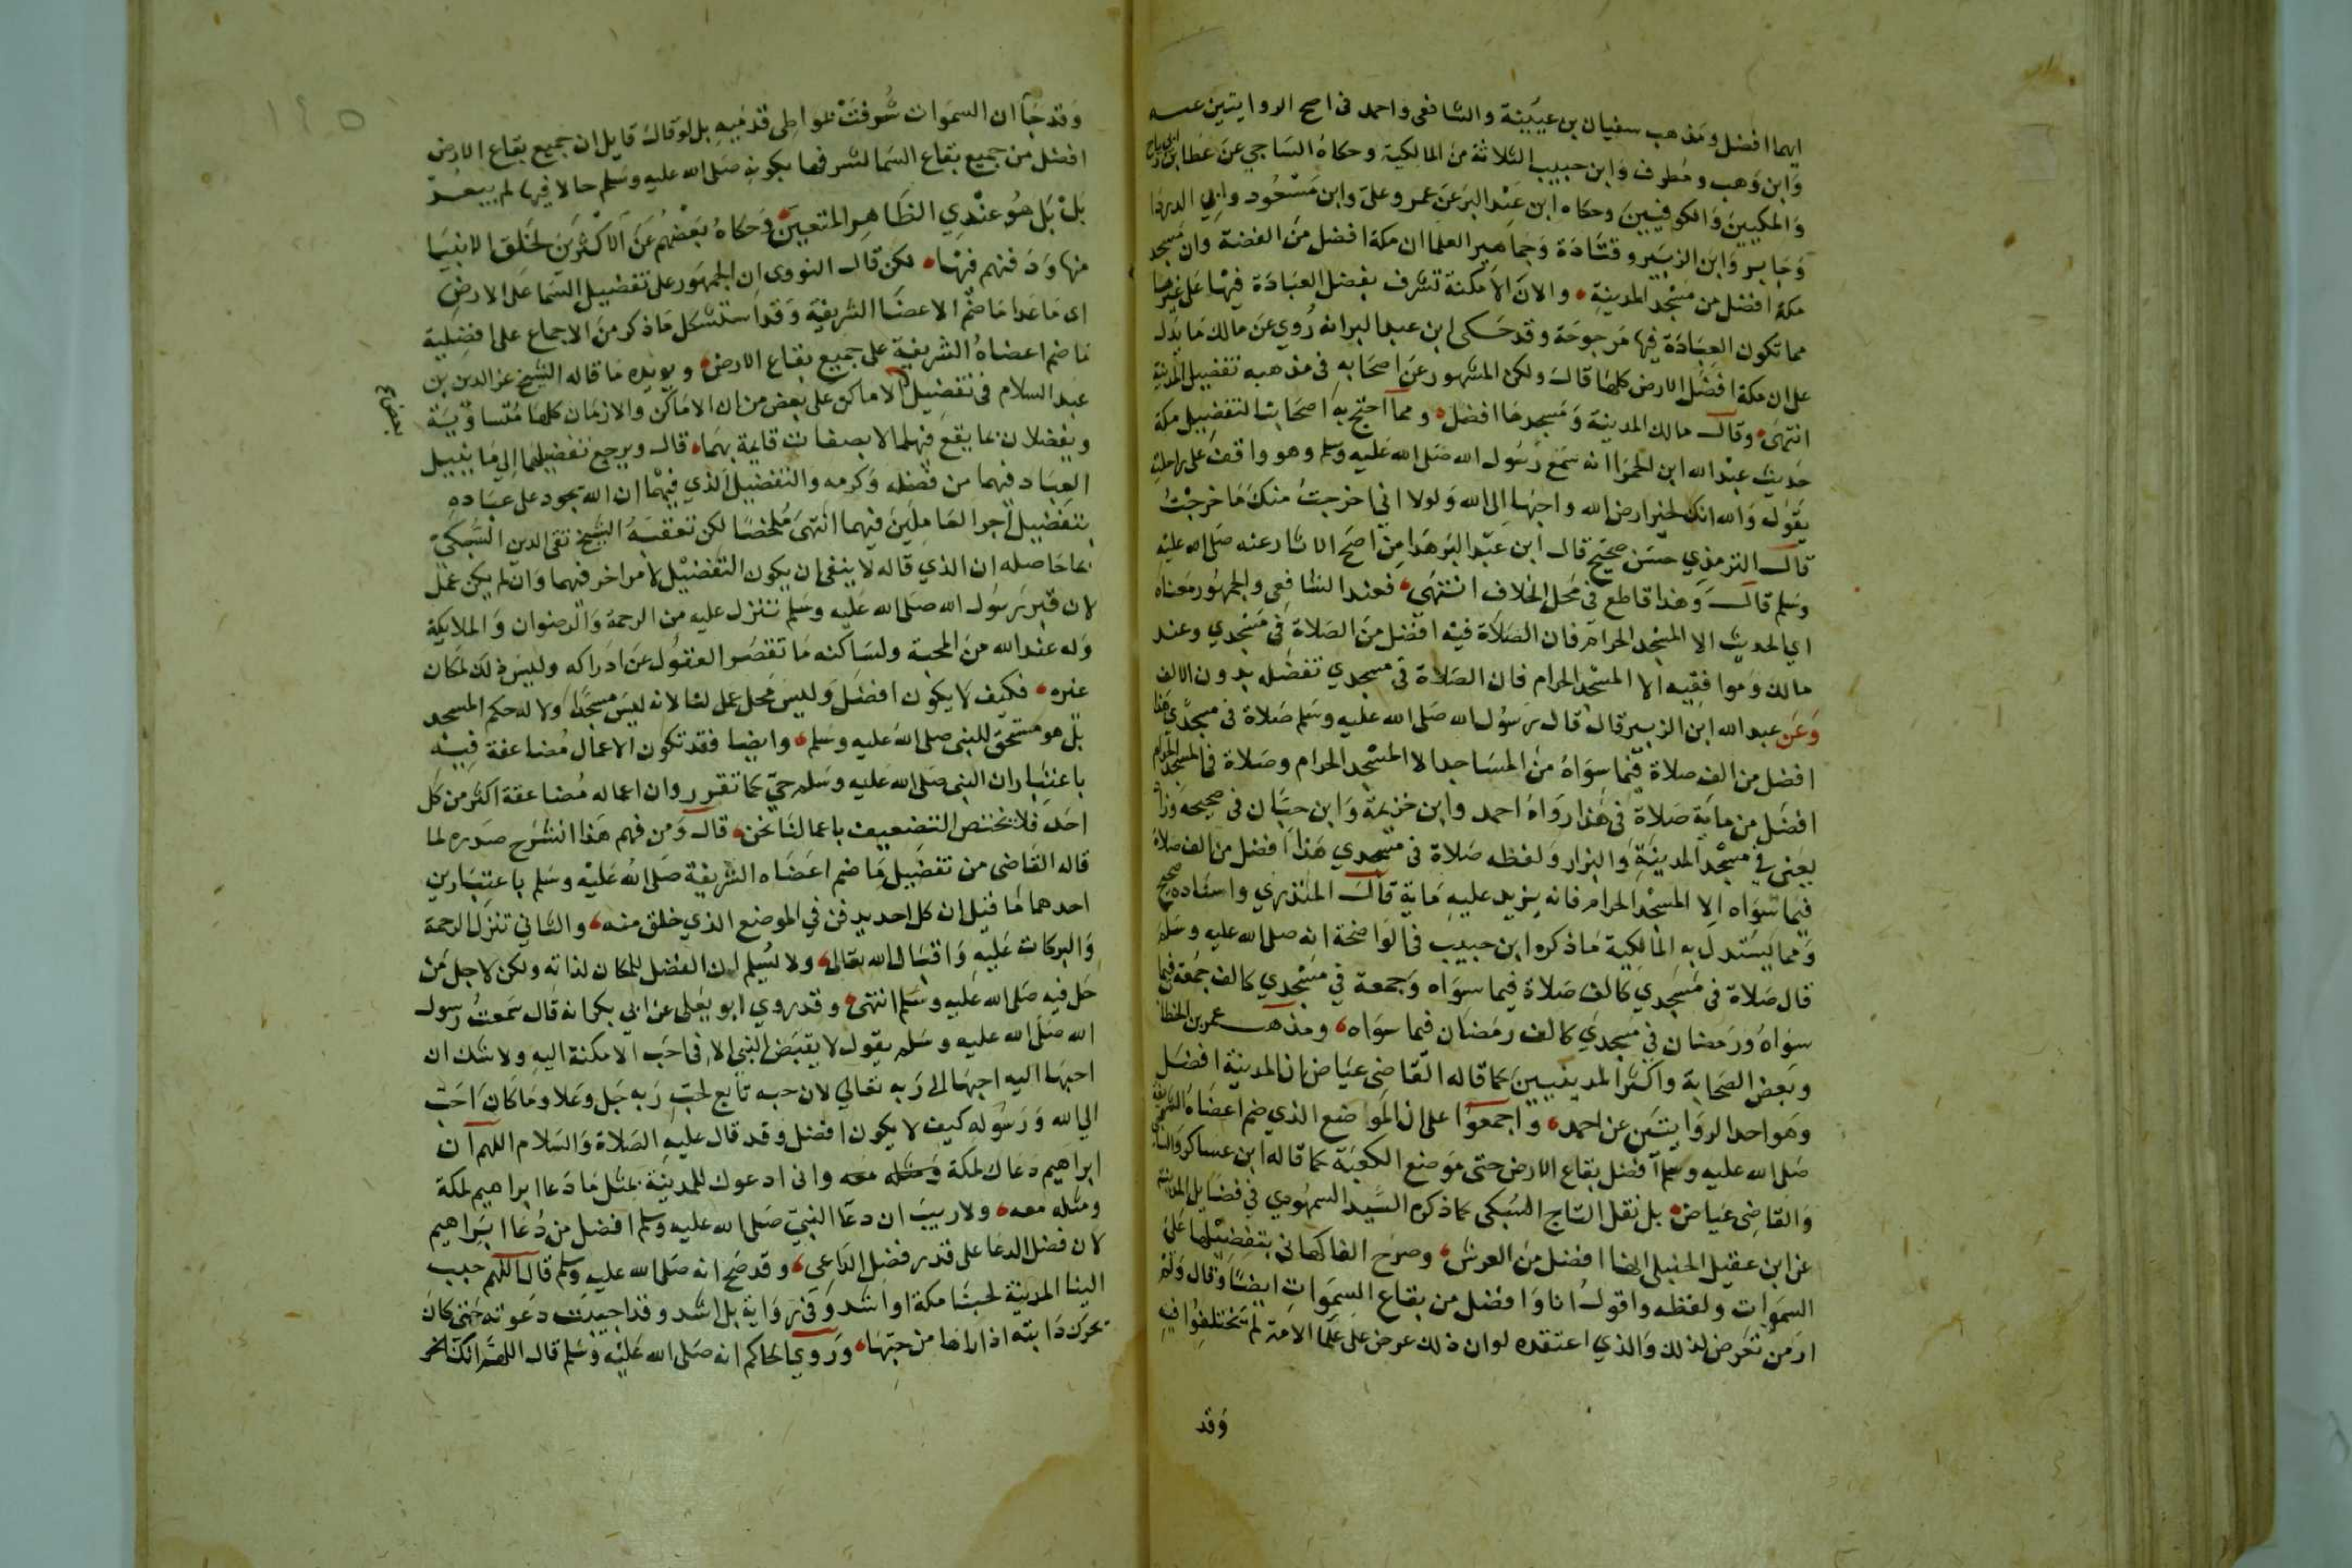 ايهما افضل ومذهب سفيان بن عيينة والشافعى واحمد فى اصح الروايتين عنه
وابن وهب ومطرف وابن حبيب الثلاثة من المالكية وحكاه الساجي عن عطا بن ابى رباح
والمكيين والكوفيين وحكاه ابن عبد البر عن عمر وعلى وابن مسعود وابي الدردا
وجابر وابن الزبير وقتادة وجماهير العلما ان مكة افضل من المدينة وان مسجد
مكة افضل من مسجد المدينة والان الامكنة تشرف بفضل العبادة فيها على غيرها
مما تكون العبادة فيها مرجوحة وقد حكى ابن عبد البر انه روي عن مالك ما يدل
على ان مكة افضل الارض كلها قال ولكن المشهور عن اصحابه فى مذهبه تفضيل المدينة
انتهى وقال مالك المدينة ومسجدها افضل ومما احتج به اصحابنا لتفضيل مكة
حديث عبد الله ابن الحمرا انه سمع رسول الله صلى الله عليه وسلم وهو واقف على راحلته
يقول والله انك لخير ارض الله واحبها الى الله ولولا انى اخرجت منك ما خرجت
قال الترمذي حسن صحيح قال ابن عبد البر هذا من اصح الاثار عنه صلى الله عليه
وسلم قال وهذا قاطع فى محل الخلاف انتهى فعند الشافعى والجمهور معناه
اي الحديث الا المسجد الحرام فان الصلاة فيه افضل من الصلاة فى مسجدي وعند
مالك وموافقيه الا المسجد الحرام فان الصلاة فى مسجدي تفضله بدون الالف
وعن عبد الله ابن الزبير قال قال رسول الله صلى الله عليه وسلم صلاة فى مسجدي هذا
افضل من الف صلاة فيما سواه من المساجد الا المسجد الحرام وصلاة فى المسجد الحرام
افضل من ماية صلاة فى هذا رواه احمد وابن خزيمة وابن حبان فى صحيحه وزاد
يعنى في مسجد المدينة والبزار ولفظه صلاة فى مسجدي هذا افضل من الف صلاة
فيما سواه الا المسجد الحرام فانه يزيد عليه ماية قال المنذري واسناده صحيح
ومما يستدل به المالكية ما ذكره ابن حبيب فى الواضحة انه صلى الله عليه وسلم
قال صلاة فى مسجدي كالف صلاة فيما سواه وجمعة في مسجدي كالف جمعة فيما
سواه ورمضان فى مسجدي كالف رمضان فيما سواه ومذهب عمر بن الخطاب
وبعض الصحابة واكثر المدنيين كما قاله القاضى عياض ان المدينة افضل
وهو احد الروايتين عن احمد واجمعوا على ان المواضع الذي ضم اعضاه الشريفة
صلى الله عليه وسلم افضل بقاع الارض حتى موضع الكعبة كما قاله ابن عساكر والباجي
والقاضى عياض بل نقل التاج السبكى كما ذكره السيد السمهودي في فضايل المدينة
عن ابن عقيل الحنبلى انها افضل من العرش وصرح الفاكهانى بتفضيلها على
السموات ولفظه واقول انا وافضل من بقاع السموات ايضا وقال ولم
ار من تعرض لذلك والذي اعتقده لو ان ذلك عرض على علما الامة لم يختلفوا فيه
وقد
١٩٥
وقد جاء ان السموات شرفت بمواطى قدميه بل لو قال قايل ان جميع بقاع الارض
افضل من جميع بقاع السما لشرفها بكونه صلى الله عليه وسلم حالا فيها لم يبعد
بل بل هو عندي الظاهر المتعين وحكاه بعضهم عن الاكثرين لخلق الانبيا
منها ودفنهم فيها لكن قال النووى ان الجمهور على تفضيل السما على الارض
اى ما عدا ما ضم الاعضا الشريفة وقد استشكل ما ذكر من الاجماع على افضلية
ما ضم اعضاه الشريفة على جميع بقاع الارض ويويده ما قاله الشيخ عز الدين بن
عبد السلام فى تفضيل الاماكن على بعض من ان الاماكن والازمان كلها متساوية
بعض
ويفضلان بما يقع فيهما لا بصفات قايمة بهما قال ويرجع تفضيلهما الى ما ينيل
العباد فيهما من فضله وكرمه والتفضيل الذي فيهما ان الله يجود على عباده
بتفضيل اجر العاملين فيهما انتهى ملخصا لكن تعقبه الشيخ تقى الدين السبكى
بما حاصله ان الذي قاله لا ينفى ان يكون التفضيل لامر اخر فيهما وان لم يكن عمل
لان قبر رسول الله صلى الله عليه وسلم تتنزل عليه من الرحمة والرضوان والملايكة
وله عند الله من المحبة ولساكنه ما تقصر العقول عن ادراكه وليس ذلك لمكان
غيره فكيف لا يكون افضل وليس محل عمل لنا لانه ليس مسجدا ولا له حكم المسجد
بل هو مستحق للنبى صلى الله عليه وسلم وايضا فقد تكون الاعمال مضاعفة فيه
باعتبار ان النبى صلى الله عليه وسلم حي كما تقرر وان اعماله مضاعفة اكثر من كل
احد فلا يختص التضعيف باعمالنا نحن قال ومن فهم هذا انشرح صدره لما
قاله القاضى من تفضيل ما ضم اعضاه الشريفة صلى الله عليه وسلم باعتبارين
احدهما ما قيل ان كل احد يدفن في الموضع الذي خلق منه والثاني تنزل الرحمة
والبركات عليه واقبال الله تعالى ولا نسلم ان الفضل للمكان لذاته ولكن لاجل من
حل فيه صلى الله عليه وسلم انتهى وقد روي ابو يعلى عن ابي بكر انه قال سمعت رسول
الله صلى الله عليه وسلم يقول لا يقبض النبى الا فى احب الامكنة اليه ولا شك ان
احبها اليه احبها الى ربه تعالي لان حبه تابع لحب ربه جل وعلا وما كان احب
الي الله ورسوله كيف لا يكون افضل وقد قال عليه الصلاة والسلام اللهم ان
ابراهيم دعاك لمكة ومثله معه وانى ادعوك للمدينة بمثل ما دعا ابراهيم لمكة
ومثله معه ولا ريب ان دعا النبي صلى الله عليه وسلم افضل من دعا ابراهيم
لان فضل الدعا على قدر فضل الداعى وقد صح انه صلى الله عليه وسلم قال اللهم حبب
الينا المدينة لحبنا مكة او اشد وفى رواية بل اشد وقد اجيبت دعوته حتى كان
يحرك دابته اذا راها من حبها وروي الحاكم انه صلى الله عليه وسلم قال اللهم انك اخر